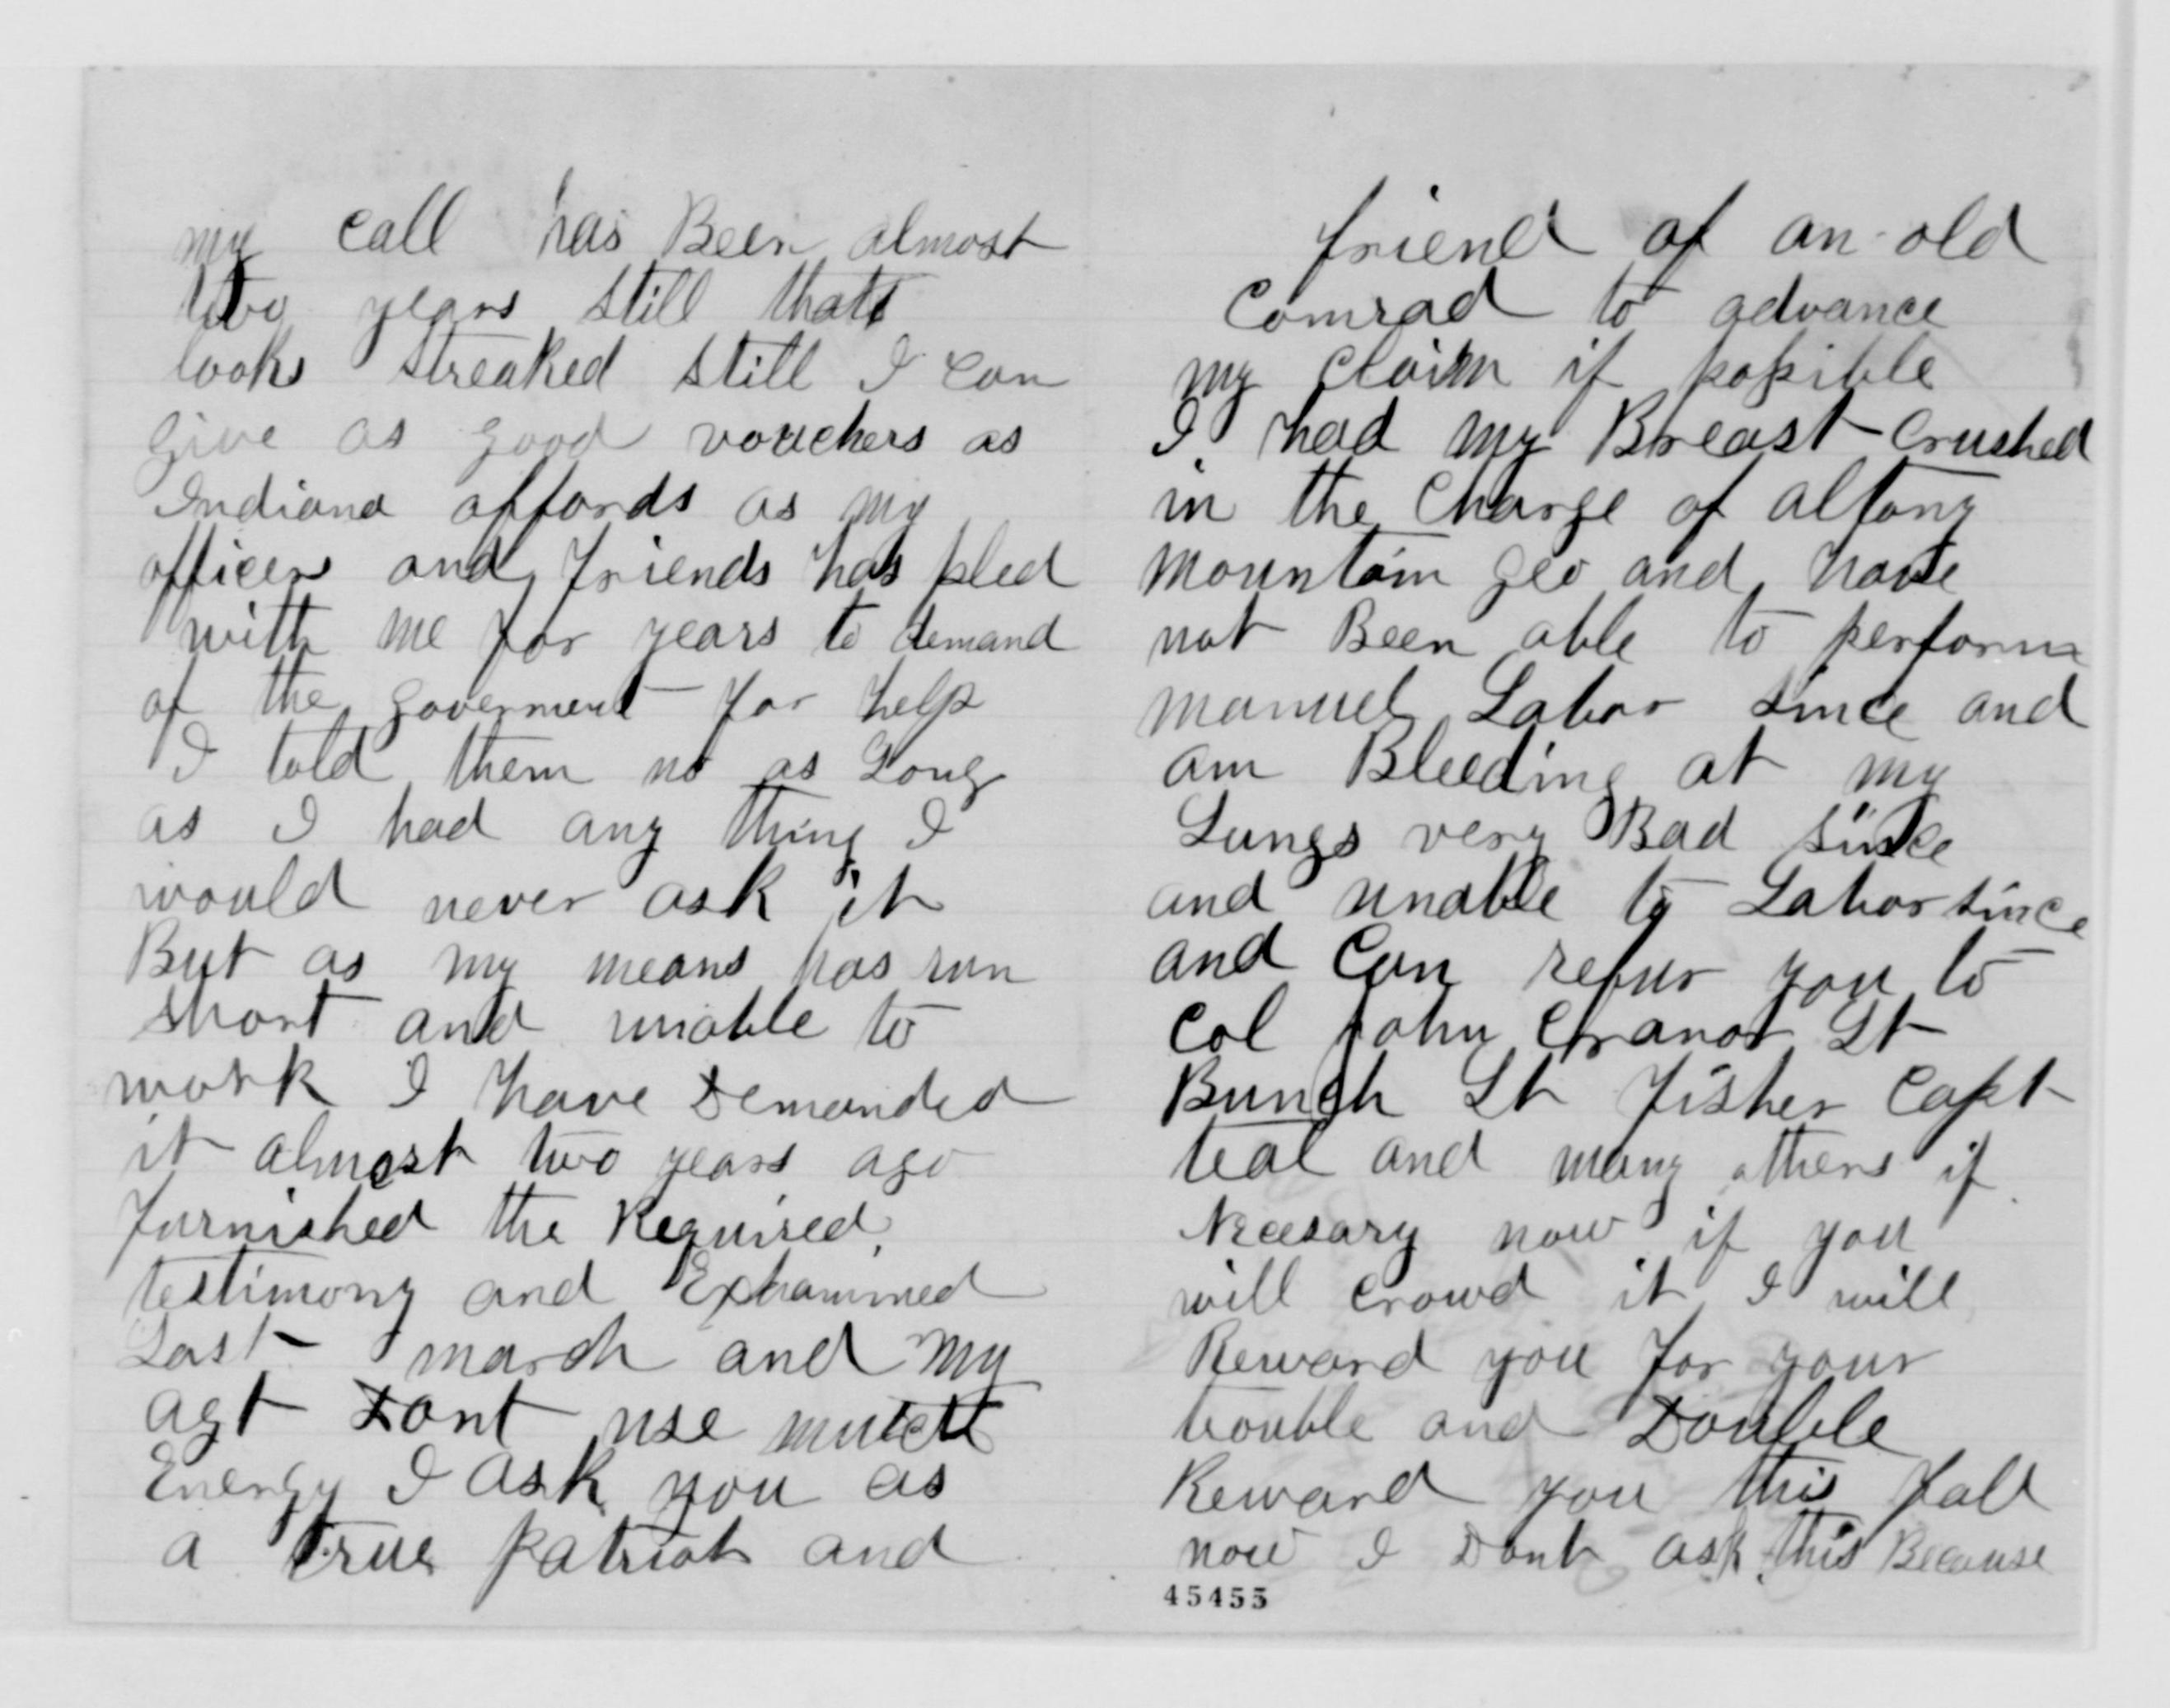 my call has Been almost
two years still thats
looks streaked still I can
give as good vouchers as
Indiana affords as my
officers and friends has pled
with me for years to demand
of the goverment for help
I told them no as Long
as I had any thing I
would never ask it
But as my means has run
short and unable to
work I have Demanded
it almost two years ago
furnished the Required
testimony and Exhammined
Last march and my
agt Dont use mutch
Energy I ask you as
a true patriot and
friend of an old
Comrad to advance
my claim if possible
I had my Breast Crushed
in the Charge of altony
mountain geo and have
not Been able to perform
manuel Labor since and
am Bleeding at my
Lungs very Bad since
and unable to Labor since
and Can refur you to
Col John Cranor Lt
Bunch Lt Fisher Capt
teal and many others if
Necesary now if you
will crowd it I will
Reward you for your
trouble and Double
Reward you this fall
now I Dont ask this Because
45455